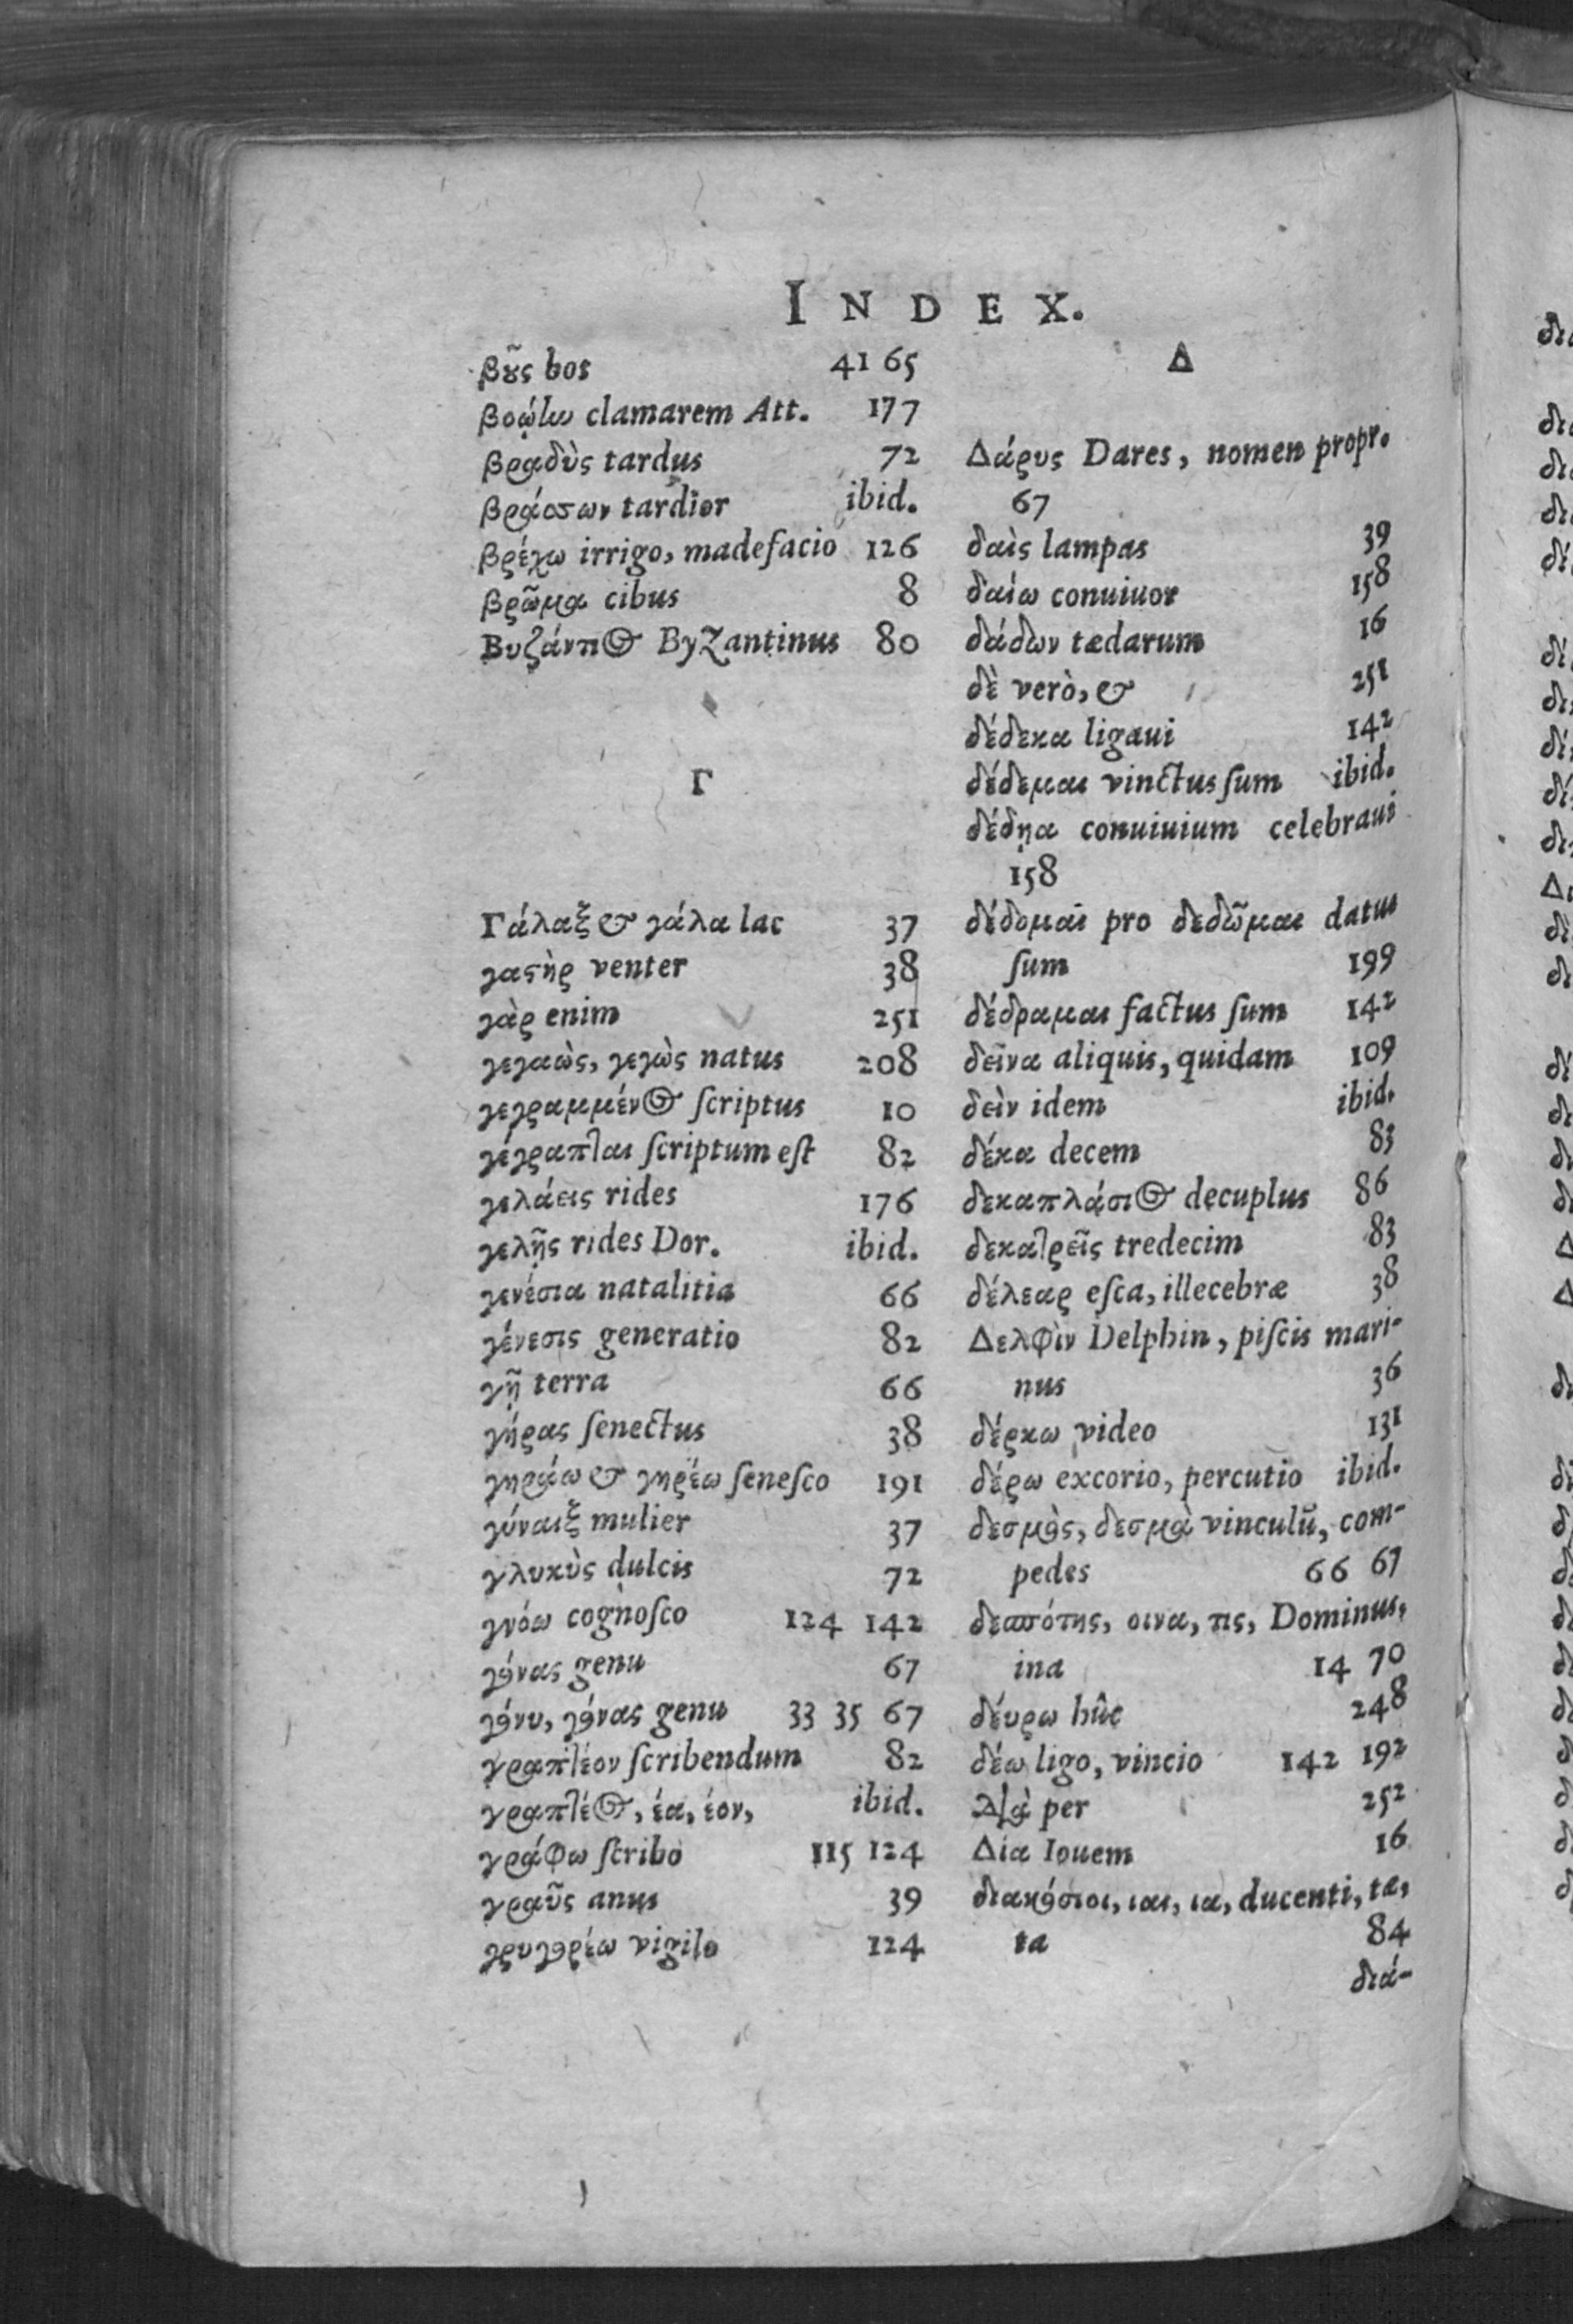 INDEX.
βοῦς bos 41 65
βοῴην clamarem Att. 177
βραδὺς tardus 72
βράσσων tardior ibid.
βρέχω irrigo, madefacio 126
βρῶμα cibus 8
Βυζάντιος Byzantinus 80
Γ
Γάλαξ & γάλα lac 37
γαστὴρ venter 38
γὰρ enim 251
γεγαὼς, γεγὼς natus 208
γεγραμμένος scriptus 10
γέγραπται scriptum est 82
γελάεις rides 176
γελῇς rides Dor. ibid.
γενέσια natalitia 66
γένεσις generatio 82
γῆ terra 66
γήρας senectus 38
γηράω & γηρέω senesco 191
γύναιξ mulier 37
γλυκὺς dulcis 72
γνόω cognosco 124 142
γόνας genu 67
γόνυ, γόνας genu 33 35 67
γραπτέον scribendum 82
γραπτέος, έα, έον, ibid.
γράφω scribo 115 124
γραῦς anus 39
γρυγορέω vigilo 124
Δ
Δάρυς Dares, nomen propr.
67
δαὶς lampas 39
δαίω conuiuor 158
δάδων tædarum 16
δὲ verò, & 251
δέδεκα ligaui 142
δέδεμαι vinctus sum ibid.
δέδηα conuiuium celebraui
158
δέδομαι pro δεδῶμαι datus
sum 199
δέδραμαι factus sum 142
δεῖνα aliquis, quidam 109
δεὶν idem ibid.
δέκα decem 83
δεκαπλάσιος decuplus 86
δεκατρεῖς tredecim 83
δέλεαρ esca, illecebræ 38
Δελφὶν Delphin, piscis mari-
nus 36
δέρκω video 131
δέρω excorio, percutio ibid.
δεσμὸς, δεσμὰ vinculū, com-
pedes 66 67
δεσπότης, οινα, τις, Dominus,
ina 14 70
δέυρω hûc 248
δέω ligo, vincio 142 192
Διὰ per 252
Δία Iouem 16
διακόσιοι, ιαι, ια, ducenti, tæ,
ta 84
διά-